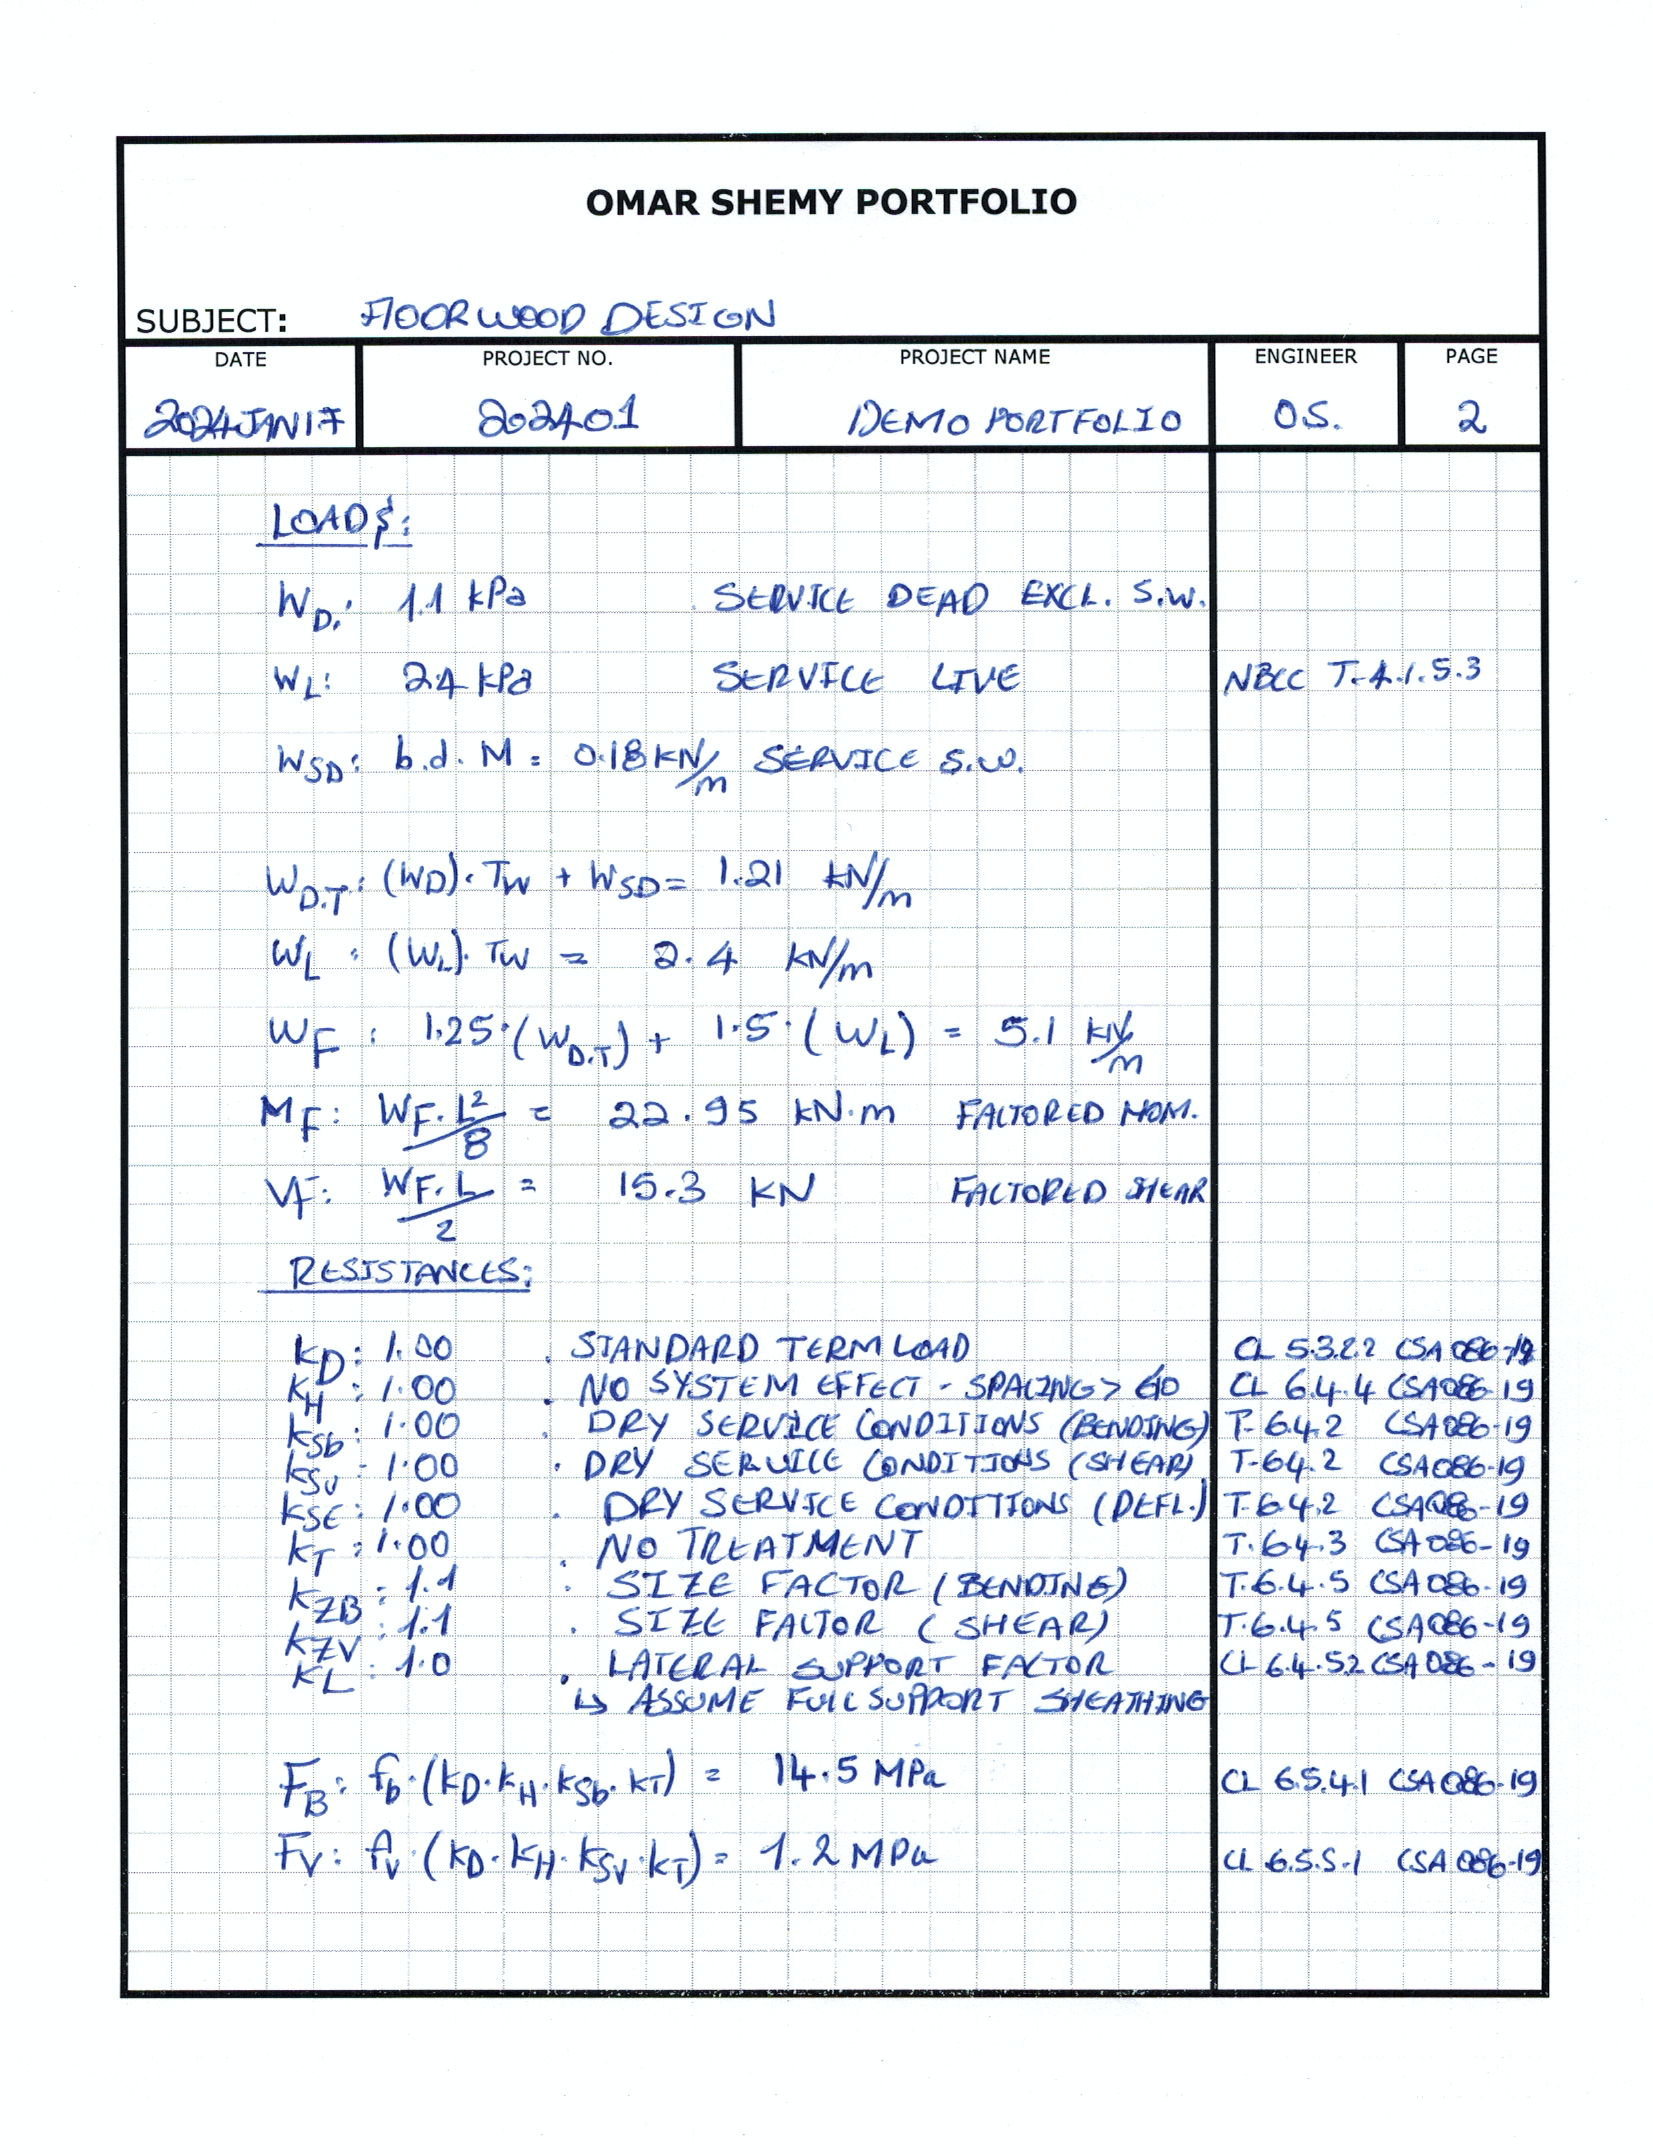 OMAR SHEMY PORTFOLIO
SUBJECT: FLOOR WOOD DESIGN
DATE PROJECT NO. PROJECT NAME ENGINEER PAGE
2024JAN17 202401 DEMO PORTFOLIO O.S. 2
LOADS:
WD: 1.1 kPa SERVICE DEAD EXCL. S.W.
WL: 2.4 kPa SERVICE LIVE NBCC T-4.1.5.3
WSD: b.d.M = 0.18 KN/m SERVICE S.W.
WD.T: (WD).TW + WSD = 1.21 kN/m
WL : (WL).TW = 2.4 kN/m
WF : 1.25.(WD.T) + 1.5.(WL) = 5.1 kN/m
MF: WF.L²/8 = 22.95 kN.m FACTORED MOM.
VF: WF.L/2 = 15.3 KN FACTORED SHEAR
RESISTANCES:
KD: 1.00 . STANDARD TERM LOAD CL 5.3.2.2 CSA 086-19
KH : 1.00 . NO SYSTEM EFFECT - SPACING > 610 CL 6.4.4 CSA086-19
KSb : 1.00 . DRY SERVICE CONDITIONS (BENDING) T-6.4.2 CSA086-19
KSV : 1.00 . DRY SERVICE CONDITIONS (SHEAR) T-6.4.2 CSA086-19
KSE : 1.00 . DRY SERVICE CONDITIONS (DEFL.) T.6.4.2 CSA086-19
KT : 1.00 . NO TREATMENT T.6.4.3 CSA086-19
KZB : 1.1 . SIZE FACTOR (BENDING) T.6.4.5 CSA086-19
KZV : 1.1 . SIZE FACTOR (SHEAR) T.6.4.5 CSA086-19
KL : 1.0 . LATERAL SUPPORT FACTOR CL 6.4.5.2 CSA086-19
↳ ASSUME FULL SUPPORT SHEATHING
FB: fb.(KD.KH.KSb.KT) = 14.5 MPa CL 6.5.4.1 CSA086-19
FV: fv.(KD.KH.KSV.KT) = 1.2 MPa CL 6.5.5.1 CSA 086-19